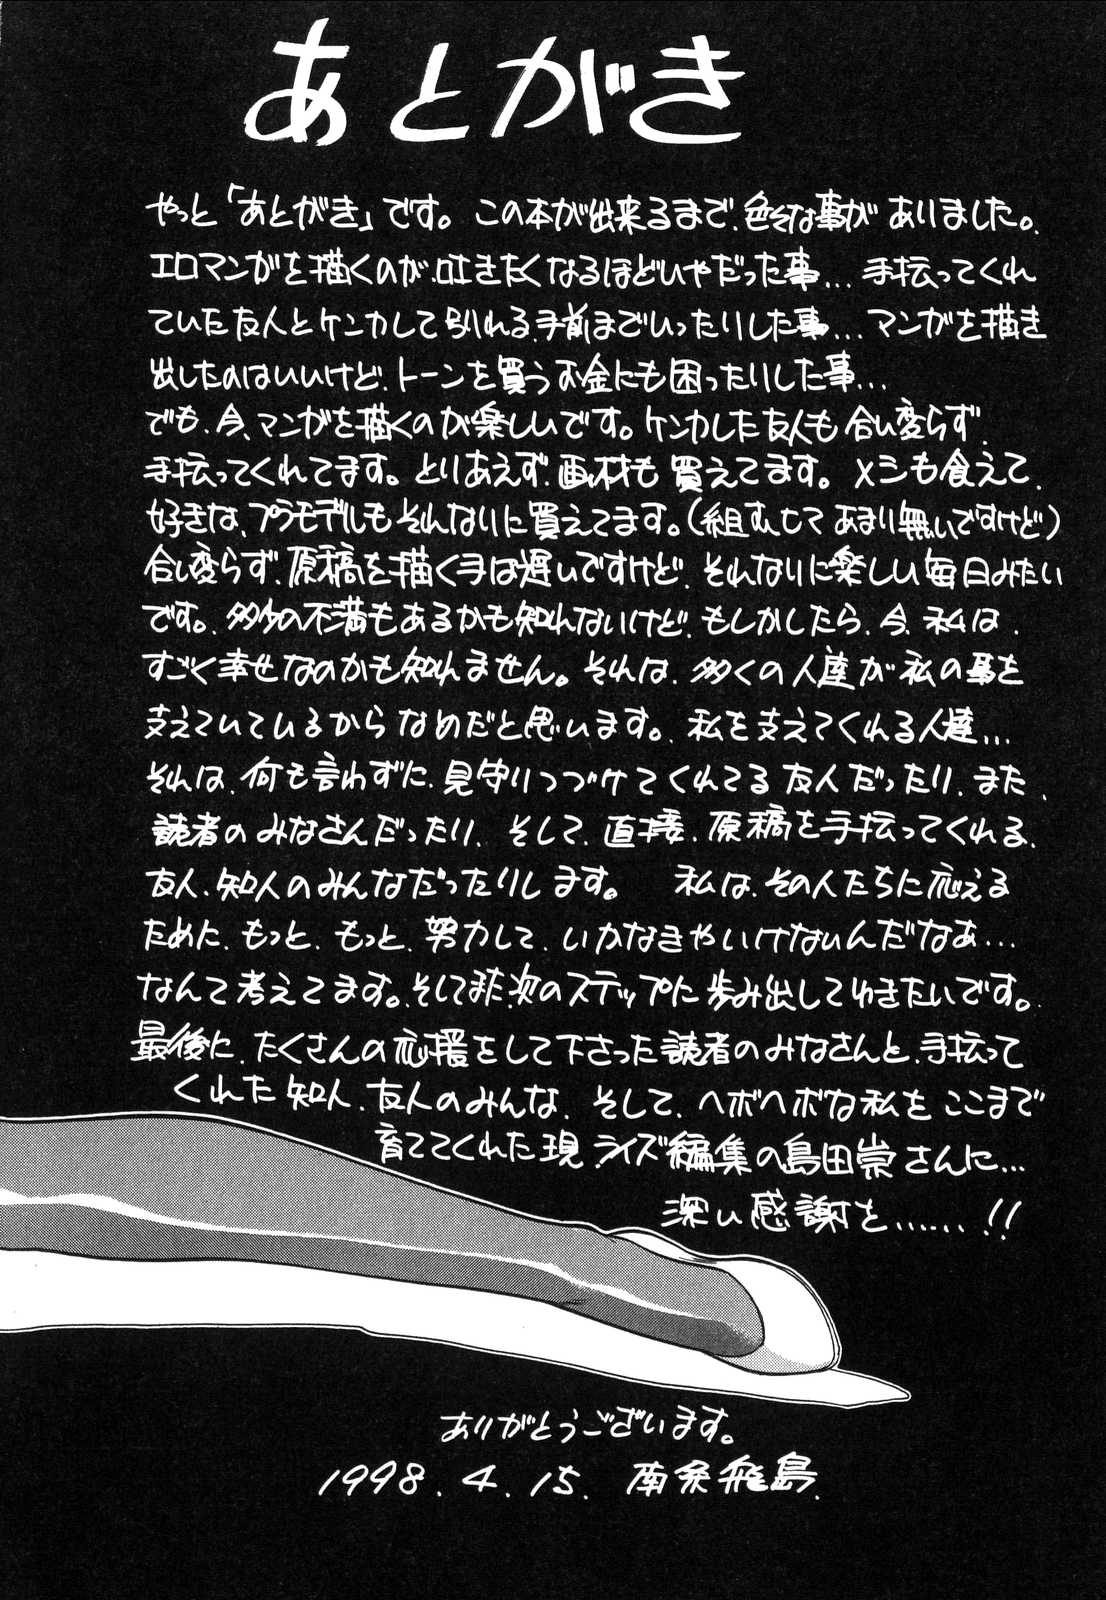 あとがき
やっと「あとがき」です。この本が出来るまで、色々な事がありました。
エロマンガを描くのが、吐きたくなるほどいやだった事…手伝ってくれ
ていた友人とケンカして別れる、手前までいったりした事…マンガを描き
出したのはいいけど、トーンを買うお金にも困ったりした事…
でも、今、マンガを描くのが楽しいです。ケンカした友人も合い変らず、
手伝ってくれてます。とりあえず、画材も買えてます。メシも食えて、
好きな、プラモデルもそれなりに買えてます。(組むヒマあまり無いですけど)
合い変らず、原稿を描く手は遅いですけど、それなりに楽しい毎日みたい
です。多少の不満もあるかも知れないけど、もしかしたら、今、私は、
すごく幸せなのかも知れません。それは、多くの人達が私の事を
支えていているからなめだと思います。私を支えてくれる人達…
それは、何も言わずに、見守りつづけてくれてる友人だったり、また、
読者のみなさんだったり、そして、直接、原稿を手伝ってくれる、
友人、知人のみんなだったりします。 私は、その人たちに応える
ために、もっと、もっと、努力して、いかなきゃいけないんだなぁ…
なんて考えてます。そしてまた次のステップに歩み出してゆきたいです。
最後に、たくさんの応援をして下さった読者のみなさんと、手伝って
くれた知人、友人のみんな、そして、ヘボヘボな私をここまで
育ててくれた現ライズ編集の島田崇さんに…
深い感謝を……!!
ありがとうございます。
1998.4.15. 南条飛島.